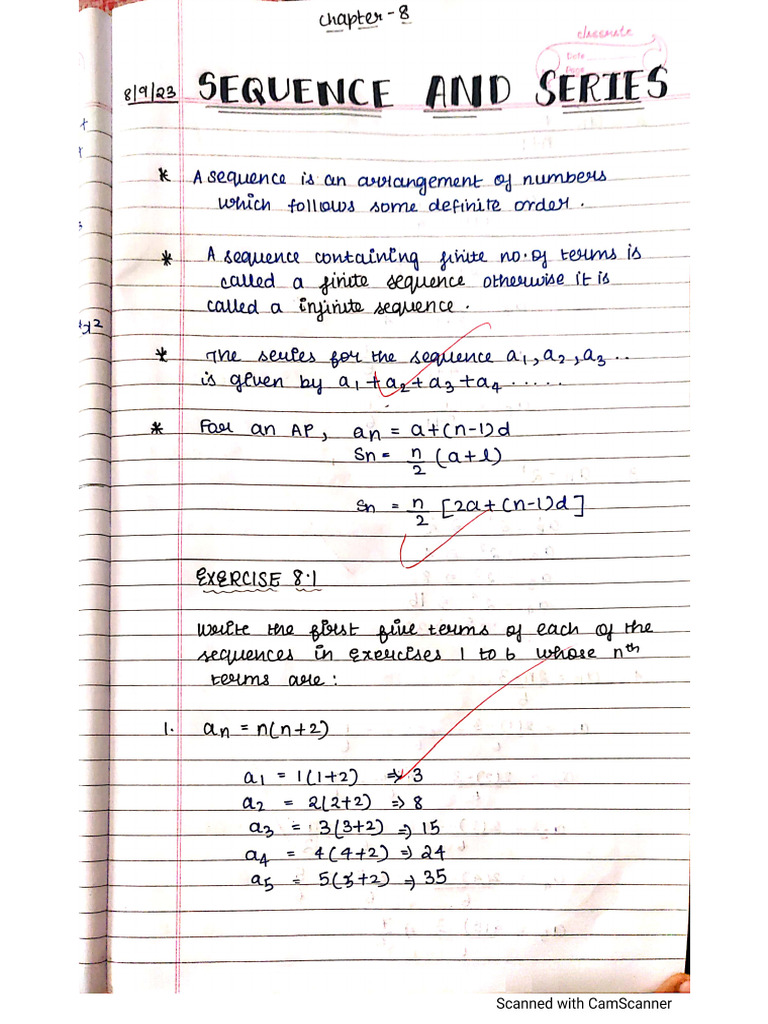 Chapter - 8
classmate
Date
Page
8/9/23 SEQUENCE AND SERIES
* A sequence is an arrangement of numbers
which follows some definite order.
* A sequence containing finite no. of terms is
called a finite sequence otherwise it is
called a infinite sequence.
* The series for the sequence a₁, a₂, a₃ ..
is given by a₁ + a₂ + a₃ + a₄ .....
* For an AP, an = a+(n-1)d
Sn = n/2 (a+l)
Sn = n/2 [2a+(n-1)d]
EXERCISE 8.1
Write the first five terms of each of the
sequences in exercises 1 to 6 whose nth
terms are:
1. an = n(n+2)
a₁ = 1(1+2) => 3
a₂ = 2(2+2) => 8
a₃ = 3(3+2) => 15
a₄ = 4(4+2) => 24
a₅ = 5(5+2) => 35
Scanned with CamScanner